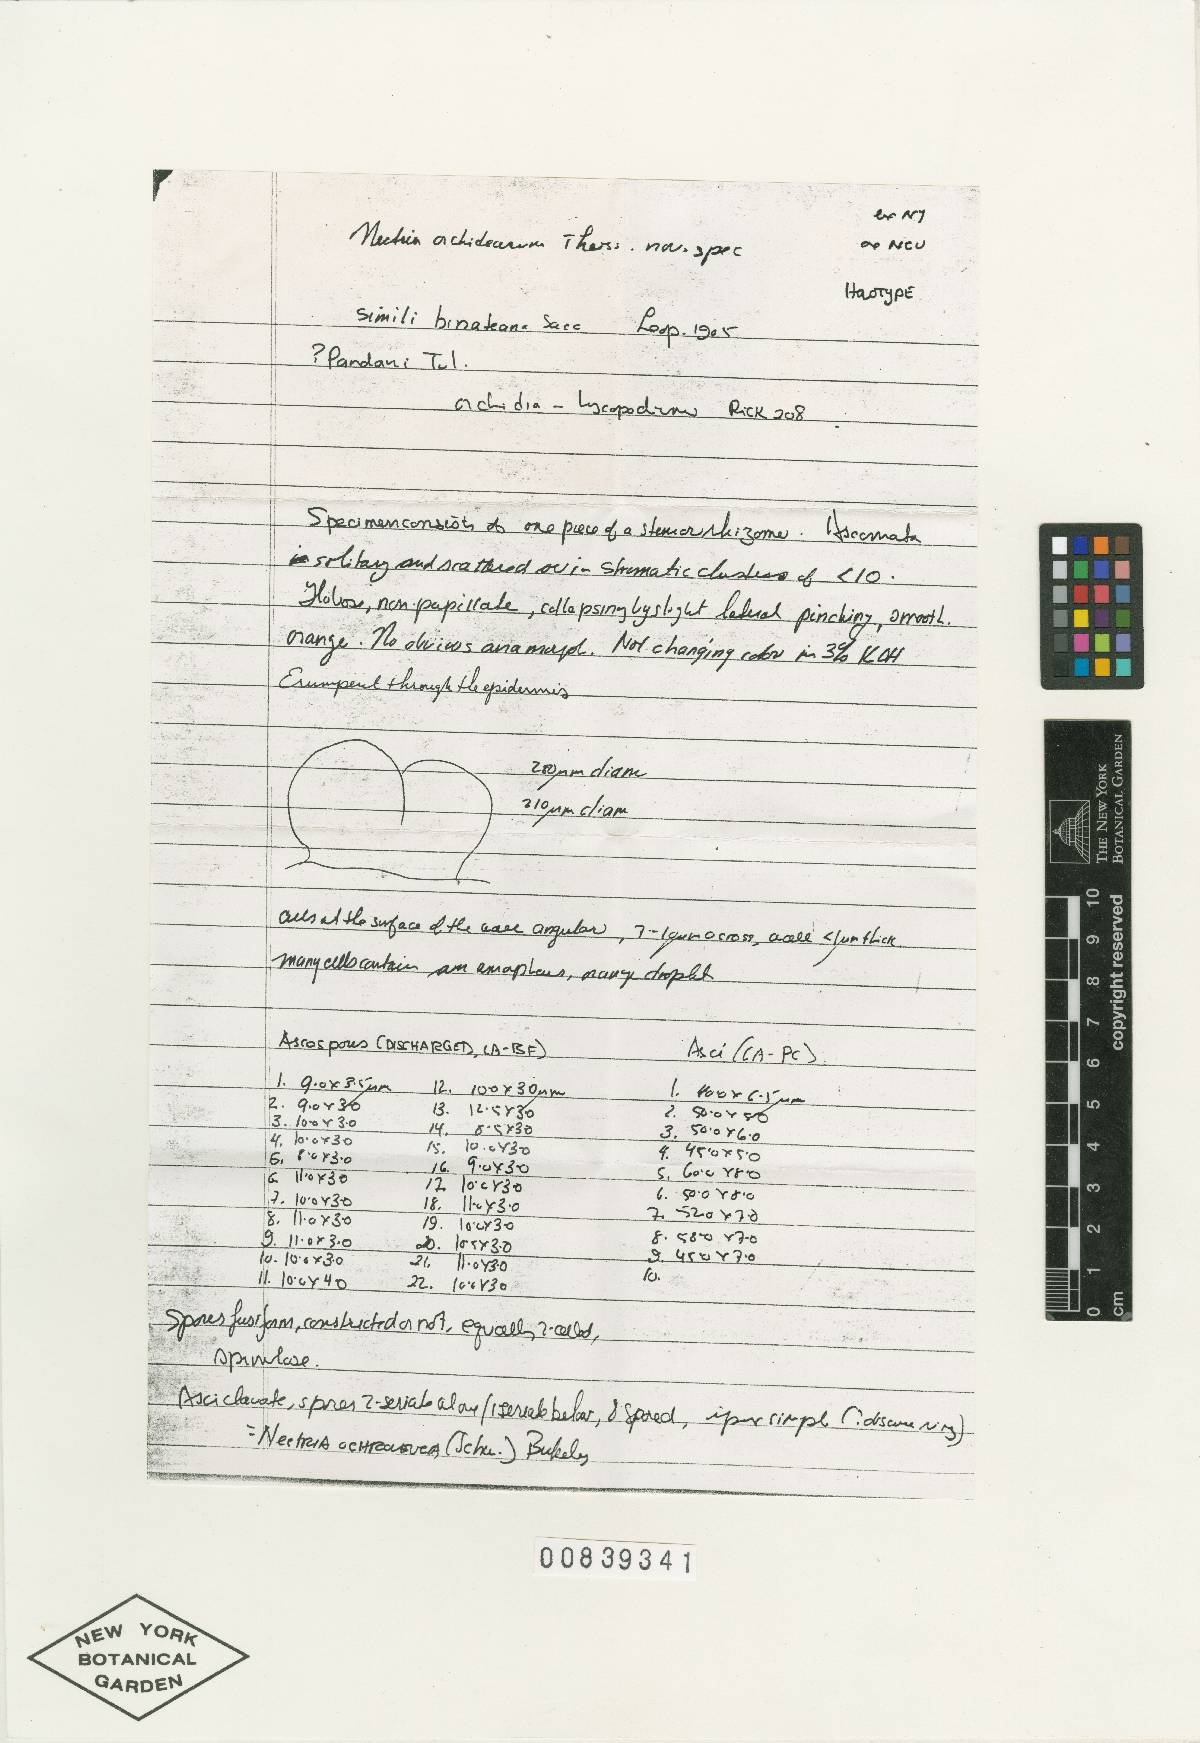 ex NY
Nectria orchidearum Theiss. nov. spec
ex NCU
HOLOTYPE
simili binateana Sacc Leop. 1905
? Pandani Tul.
orchidia - Lycopodium RICK 208
Specimen consists of one piece of a stem or rhizome. Ascomata
solitary and scattered or in stromatic clusters of <10.
Globose, non-papillate, collapsing by slight lateral pinching, smooth.
orange. No obvious anamorph. Not changing color in 3% KOH
Erumpent through the epidermis
280µm diam
210µm diam
cells at the surface of the wall angular, across, wall <1µm thick
many cells contain an amorphous, orange droplet
Ascospores (DISCHARGED, LA-BF) Asci (LA-PC)
1. 9.0 x 3.5µm 12. 10.0 x 3.0µm 1. 40.0 x 6.5µm
2. 9.0 x 3.0 13. 12.5 x 3.0 2. 50.0 x 5.0
3. 10.0 x 3.0 14. 8.5 x 3.0 3. 50.0 x 6.0
4. 10.0 x 3.0 15. 10.0 x 3.0 4. 45.0 x 5.0
5. 8.0 x 3.0 16. 9.0 x 3.0 5. 60.0 x 8.0
6. 11.0 x 3.0 17. 10.0 x 3.0 6. 50.0 x 8.0
7. 10.0 x 3.0 18. 11.0 x 3.0 7. 52.0 x 7.0
8. 11.0 x 3.0 19. 10.0 x 3.0 8. 58.0 x 7.0
9. 11.0 x 3.0 20. 10.5 x 3.0 9. 45.0 x 7.0
10. 10.0 x 3.0 21. 11.0 x 3.0 10.
11. 10.0 x 4.0 22. 10.0 x 3.0
Spores fusiform, constricted or not, equally 2-celled,
spinulose.
Asci clavate, spores 2-seriate above/1 seriate below, 8 spored, apex simple (? obscure ring)
= NECTRIA OCHROLEUCA (Schw.) Berkeley
00839341
NEW YORK
BOTANICAL
GARDEN
THE NEW YORK
BOTANICAL GARDEN
copyright reserved
0 1 2 3 4 5 6 7 8 9 10
cm